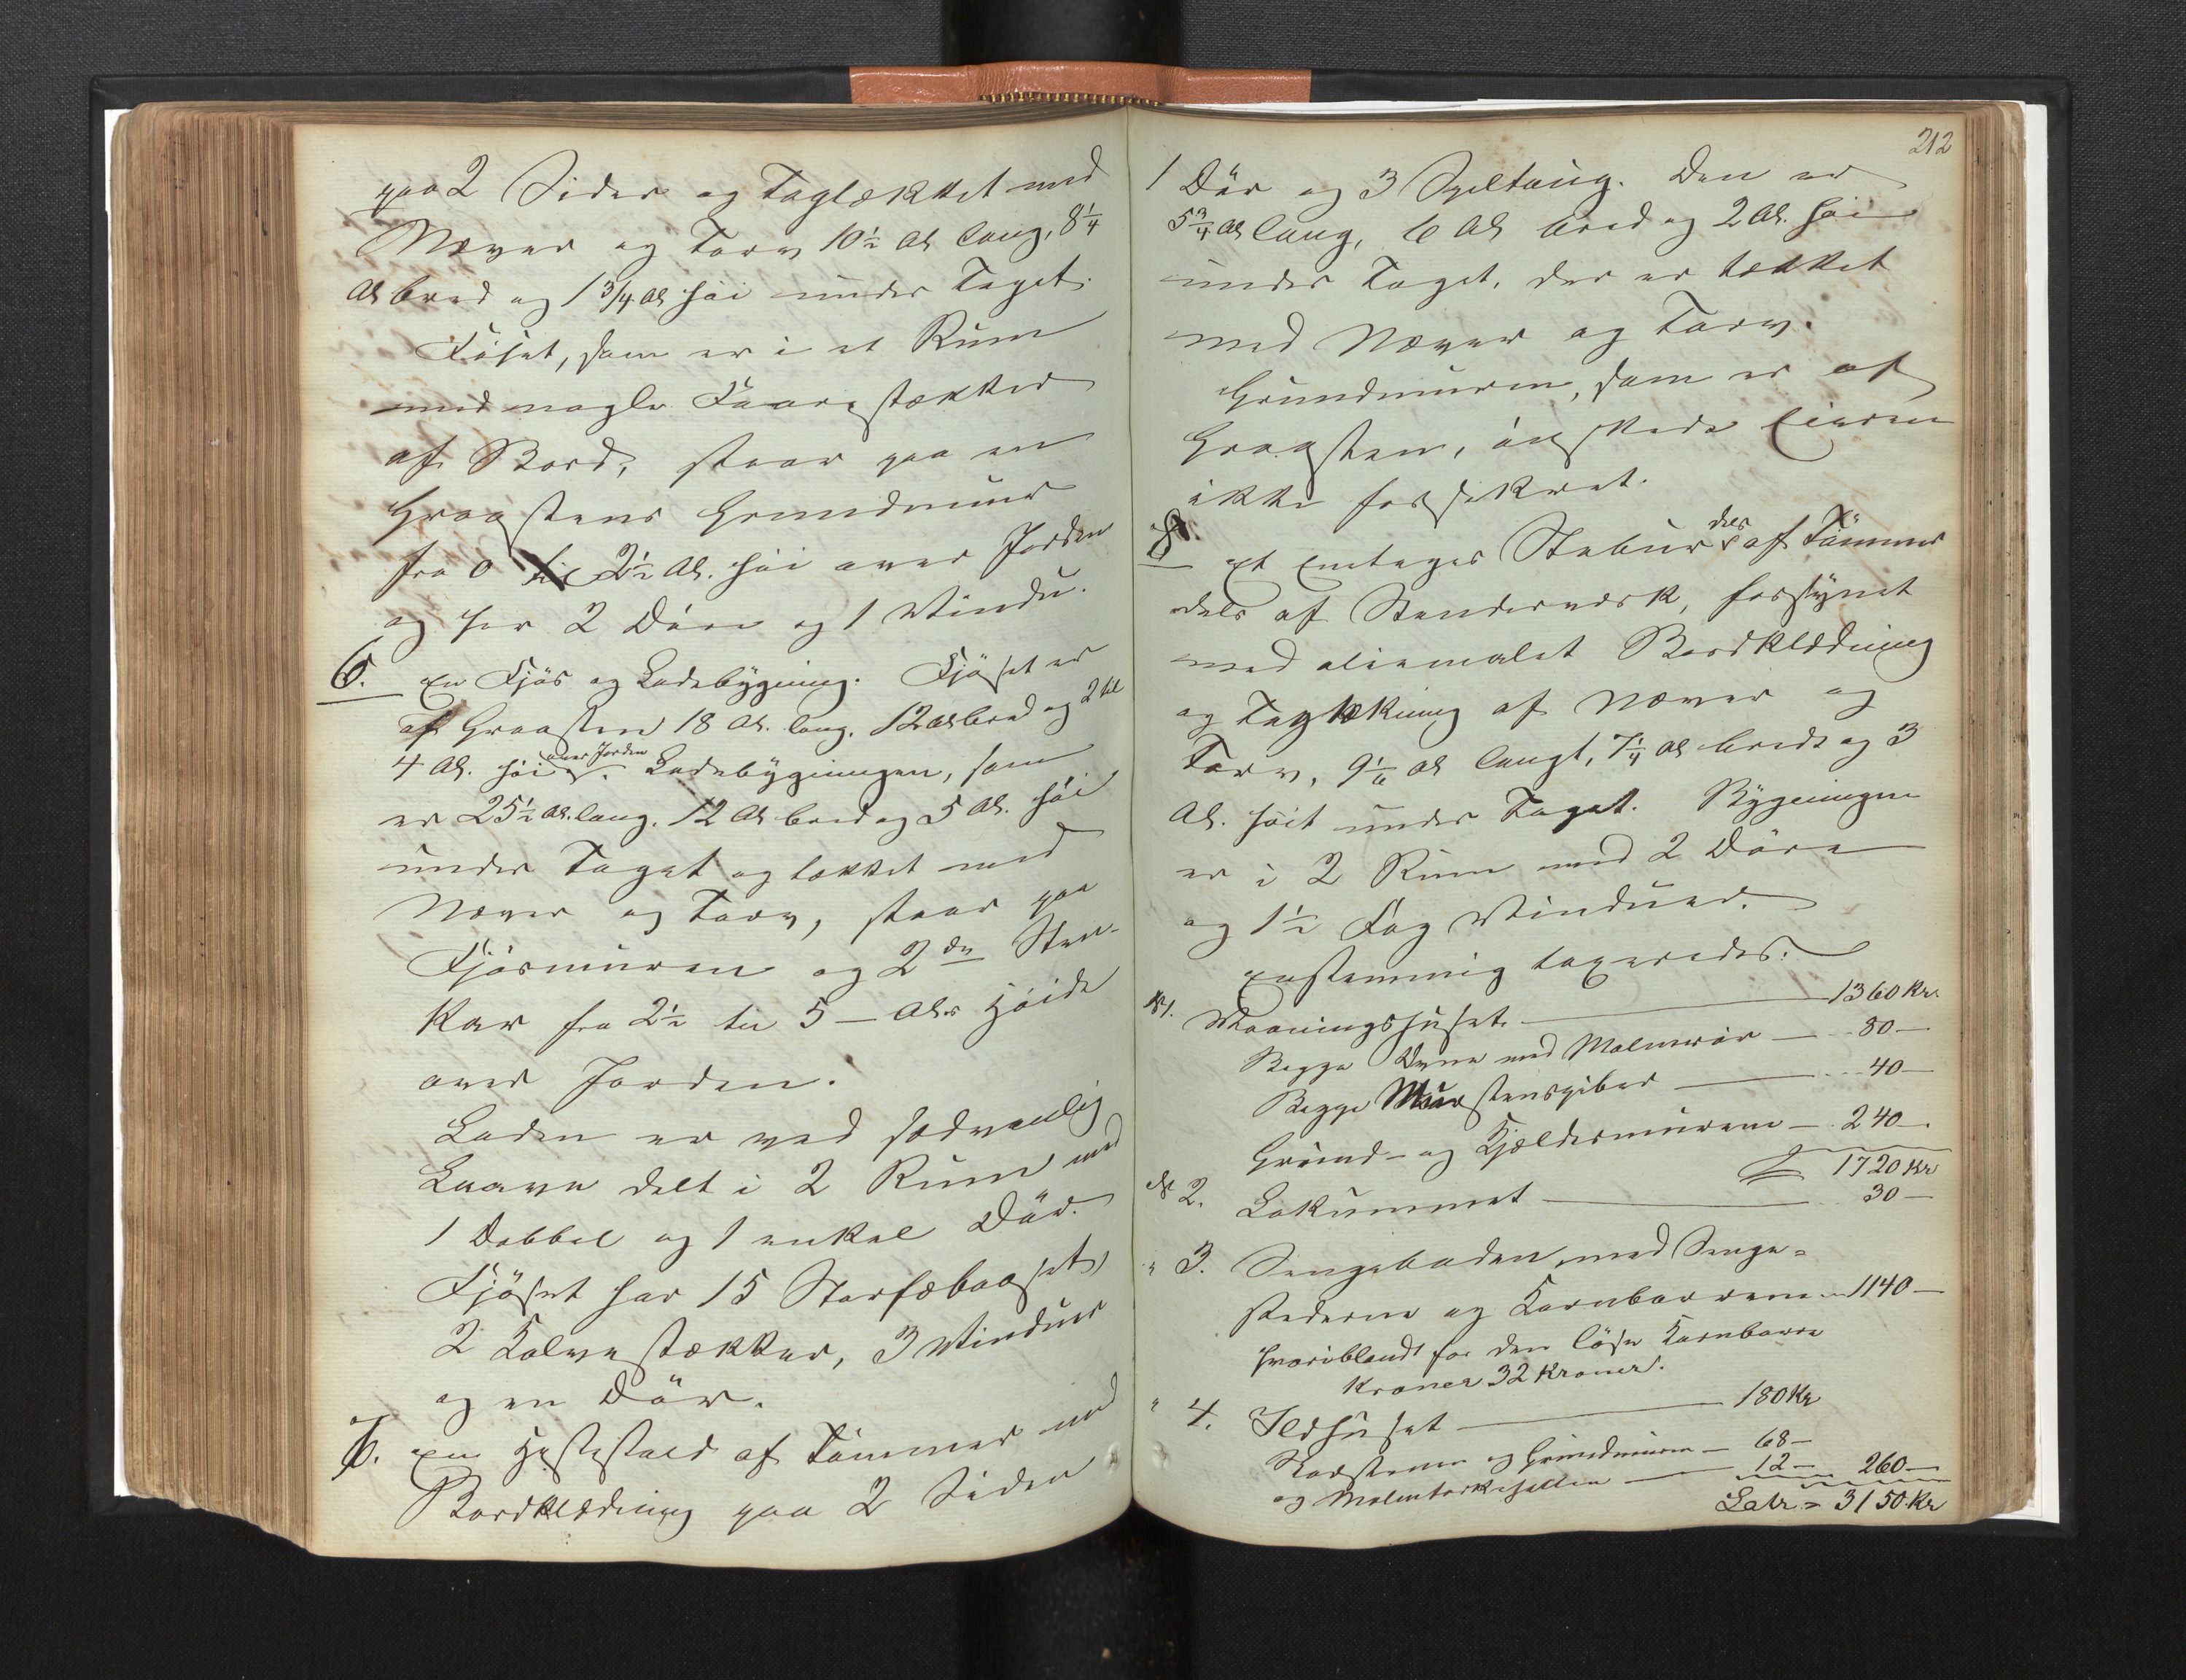 paa 2 Sider og Taglækket med
Næver og Torv 10½ Al lang, 8¼
Al bred og 1 3/4 Al høi under Taget.
Föset, som er i et Rum
med nogle Faarestækker
af Bord, staar paa en
Graastens Grundmuur
fra 0 til 2½ Al. høi over Jorden
og har 2 Döre og 1 Vindu.
6. En Fjös og Ladebygning. Fjöset er
af Graasten 18 Al. lang, 12 Al bred og 2 til
4 Al. høi over Jorden. Ladebygningen, som
er 25½ Al. lang, 12 Al bred og 5 Al. høi
under Taget og tækket med
Næver og Torv, staar paa
Fjösmuren og 2de Sten-
kar fra 2½ til 5 - Alrs Høide
over Jorden.
Laden er ved sædvanlig
Laave delt i 2 Rum med
1 Dobbel og 1 enkel Dör.
Fjöset har 15 Storfæbaaset,
2 Kalvestækker, 3 Vinduer
og en Dör.
7. En Hestestald af Tömmer med
Bordklædning paa 2 Sider
212
1 Dör og 3 Spiltaug. Den er
5¾ Al lang, 6 Al bred og 2 Al. høi
under Taget, der er tækket
med Næver og Torv.
Grundmuren, som er af
Graasten, önskede Eieren
ikke forsikret.
8. Et Enetages Stabur dels af Tömmer
dels af Stenderværk, forsynet
med oliemalet Bordklædning
og Taglækning af Næver og
Torv, 9 1/6 Al langt, 7¼ Al bredt og 3
Al. høit under Taget. Bygningen
er i 2 Rum med 2 Döre
og 1½ Fag Vinduer.
Enstemmig taxeredes:
№ 1. Vaaningshuset 1360 Kr.
Begge Ovne med Malmrör 80 —
Begge Murstenspiber 40 —
Grund- og Kjældermurene 240 —
1720 Kr
№ 2. Lokummet 30 —
" 3. Sengeboden med Senge-
stederne og Kornbarrene 1140 —
hvoriblandt for den löse Kornbarre
Kroner 32 Kroner.
" 4. Ildhuset 180 Kr
Skorstenen og Grundmuren 68 —
og 12 — 260 —
Latr. = 3150 Kr